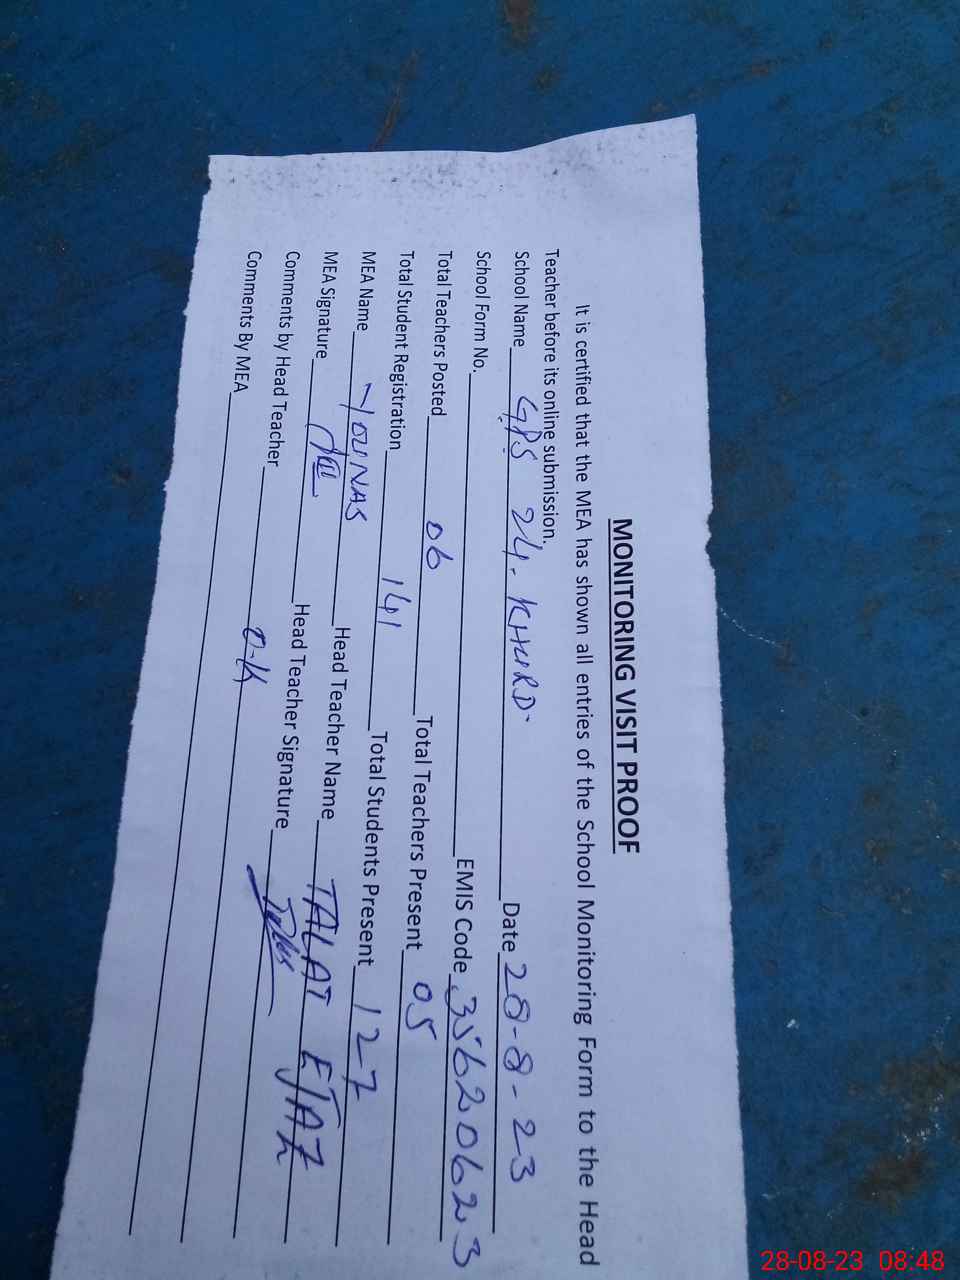 MONITORING VISIT PROOF
It is certified that the MEA has shown all entries of the School Monitoring Form to the Head
Teacher before its online submission.
School Name GPS 24-KHURD Date 28-8-23
School Form No. EMIS Code 35620623
Total Teachers Posted 06 Total Teachers Present 05
Total Student Registration 141 Total Students Present 127
MEA Name YOUNAS Head Teacher Name TALAT EJAZ
MEA Signature Head Teacher Signature
Comments by Head Teacher O-K
Comments By MEA
28-08-23 08:48